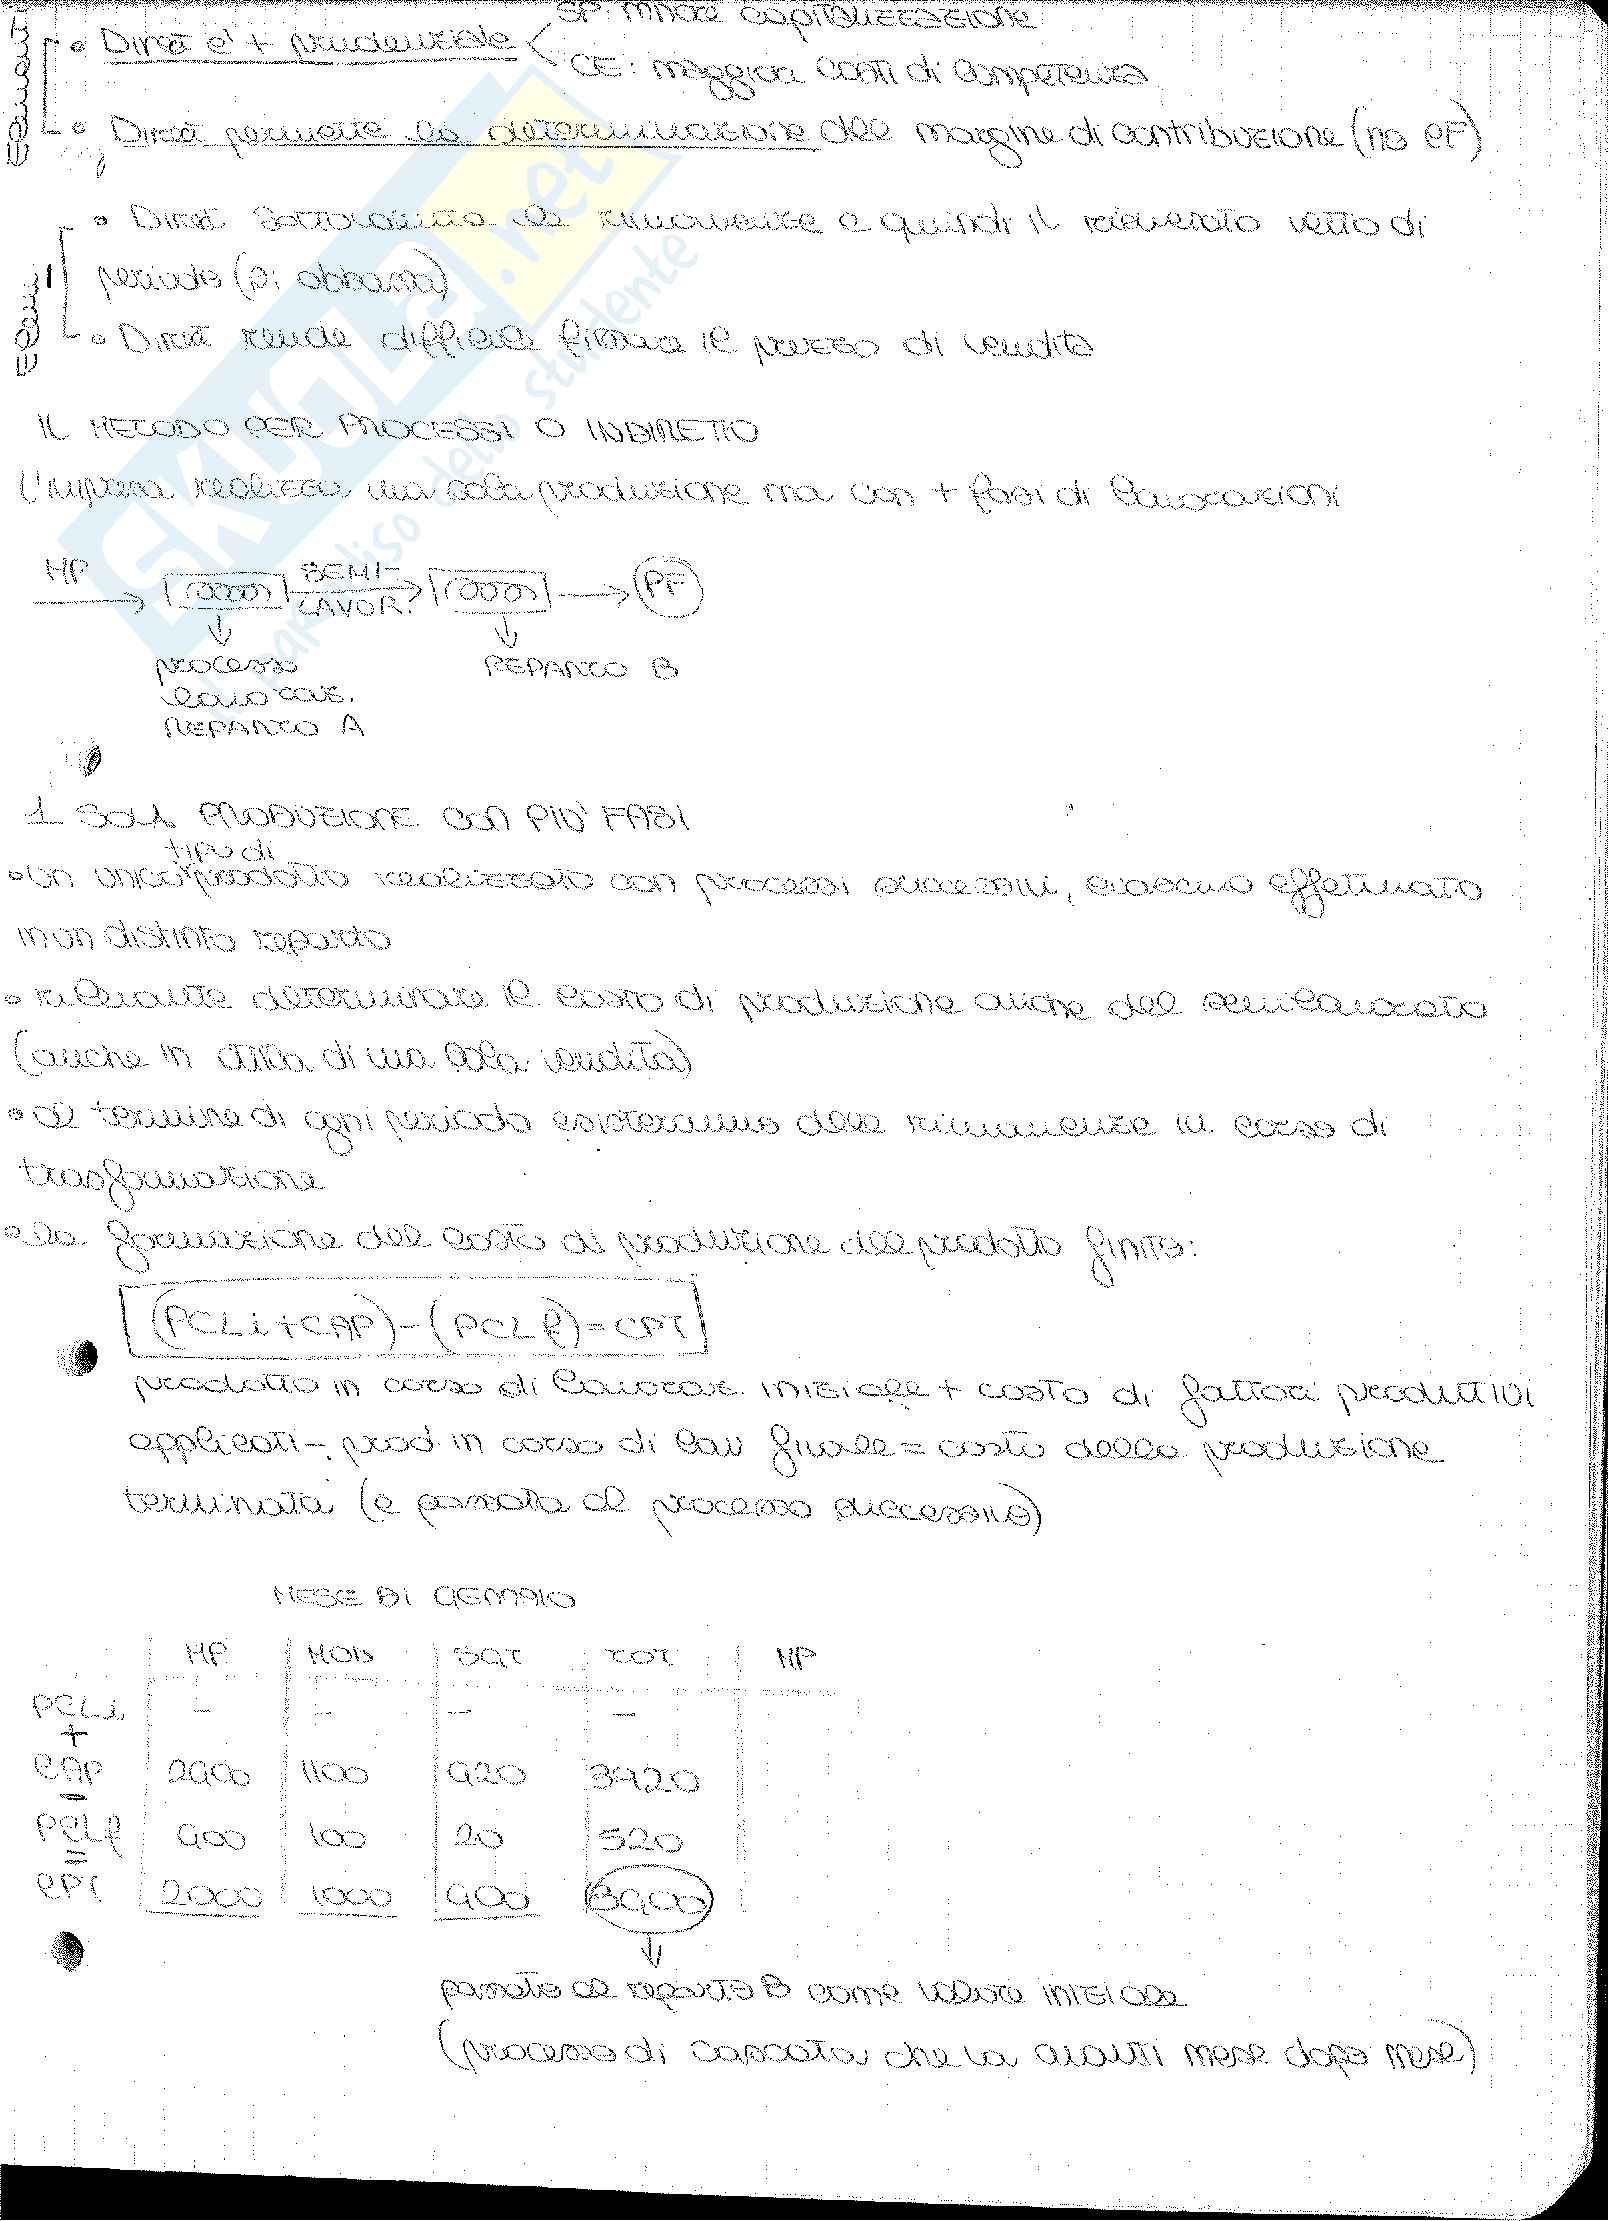 SP: minore capitalizzazione
Vantaggi
• Direct è + prudenziale
CE: maggiori costi di competenza
• Direct permette la determinazione del margine di contribuzione (no CF)
• Direct sottovaluta le rimanenze e quindi il risultato netto di
periodo (si abbassa)
• Direct rende difficile fissare il prezzo di vendita
IL METODO PER PROCESSI O INDIRETTO
L'impresa realizza una sola produzione ma con + fasi di lavorazioni
MP
SEMI-
LAVOR.
PF
processo
lavoraz.
REPARTO A
REPARTO B
1 SOLA PRODUZIONE CON PIU' FASI
tipo di
• un unico prodotto realizzato con processi successivi, ciascuno effettuato
in un distinto reparto
• rilevante determinare il costo di produzione anche del semilavorato
(anche in ottica di una sola vendita)
• al termine di ogni periodo esisteranno delle rimanenze in corso di
trasformazione
• la formazione del costo di produzione del prodotto finito:
(PCLi + CAP) - (PCLf) = CPT
prodotto in corso di lavoraz. iniziale + costo di fattori produttivi
applicati - prod. in corso di lav finale = costo della produzione
terminata (e passata al processo successivo)
MESE DI GENNAIO
MP MOD SGT TOT MP
PCLi - - - -
+
CAP 2400 1100 420 3920
-
PCLf 400 100 20 520
=
CPT 2000 1000 400 3400
passato al reparto B come valore iniziale
(processo di cascata che va avanti mese dopo mese)
SKUOLA.net
il paradiso dello studente